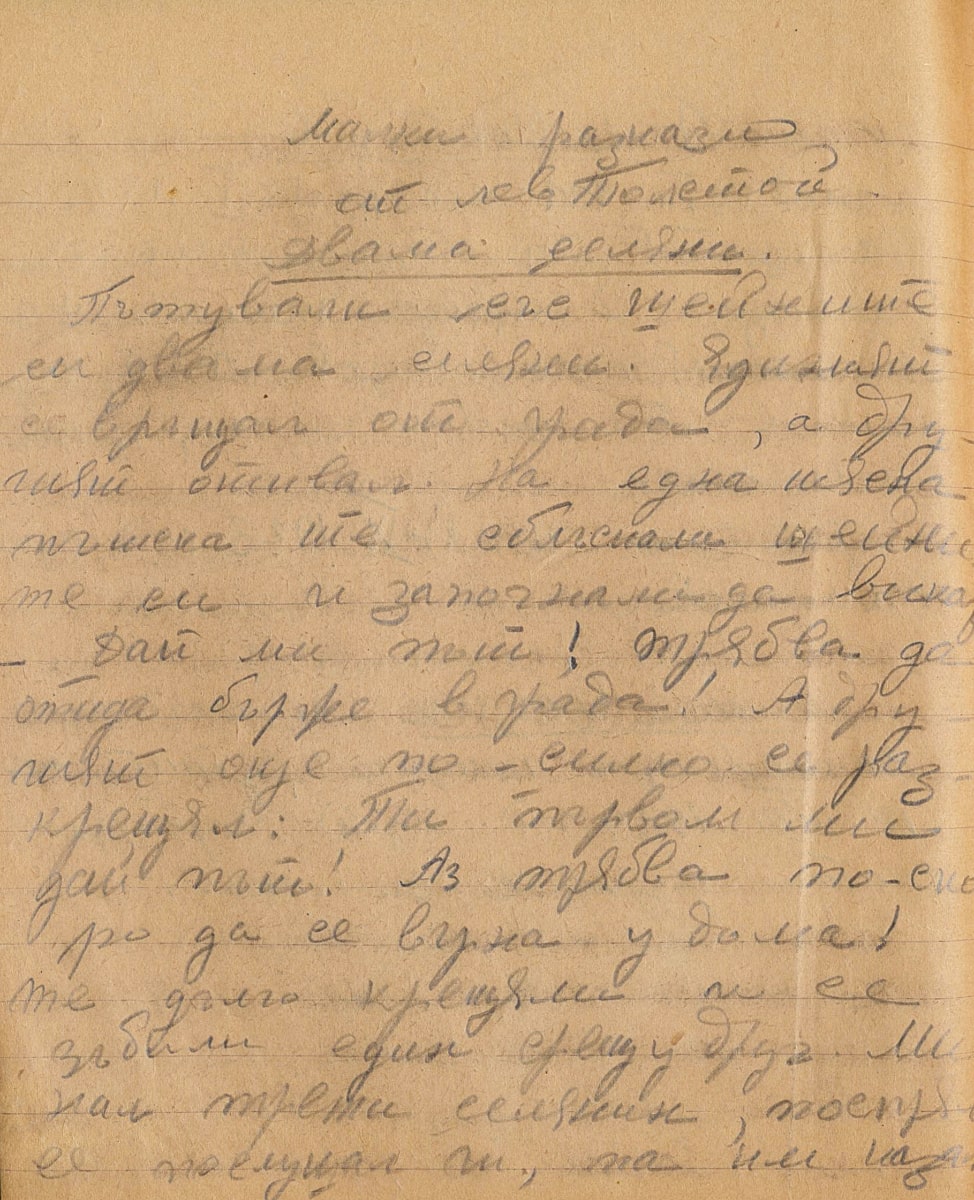 Малки разкази
от лев Толстой.
Двама селяни.
Пътували със шейните
си двама селяни. Единият
се връщал от града, а дру
гият отивал. На една тясна
пътека те сблъскали шейни
те си и започнали да вика
- Дай ми път! трябва да
отида бърже в града! А дру
гият още по-силно се раз-
крещял: Ти първом ми
дай път! Аз трябва по-ско
ро да се върна у дома!
те дълго крещяли и се
зъбили един срещу друг. Ми
нал трети селянин, поспря
се послушал ги, па им каза